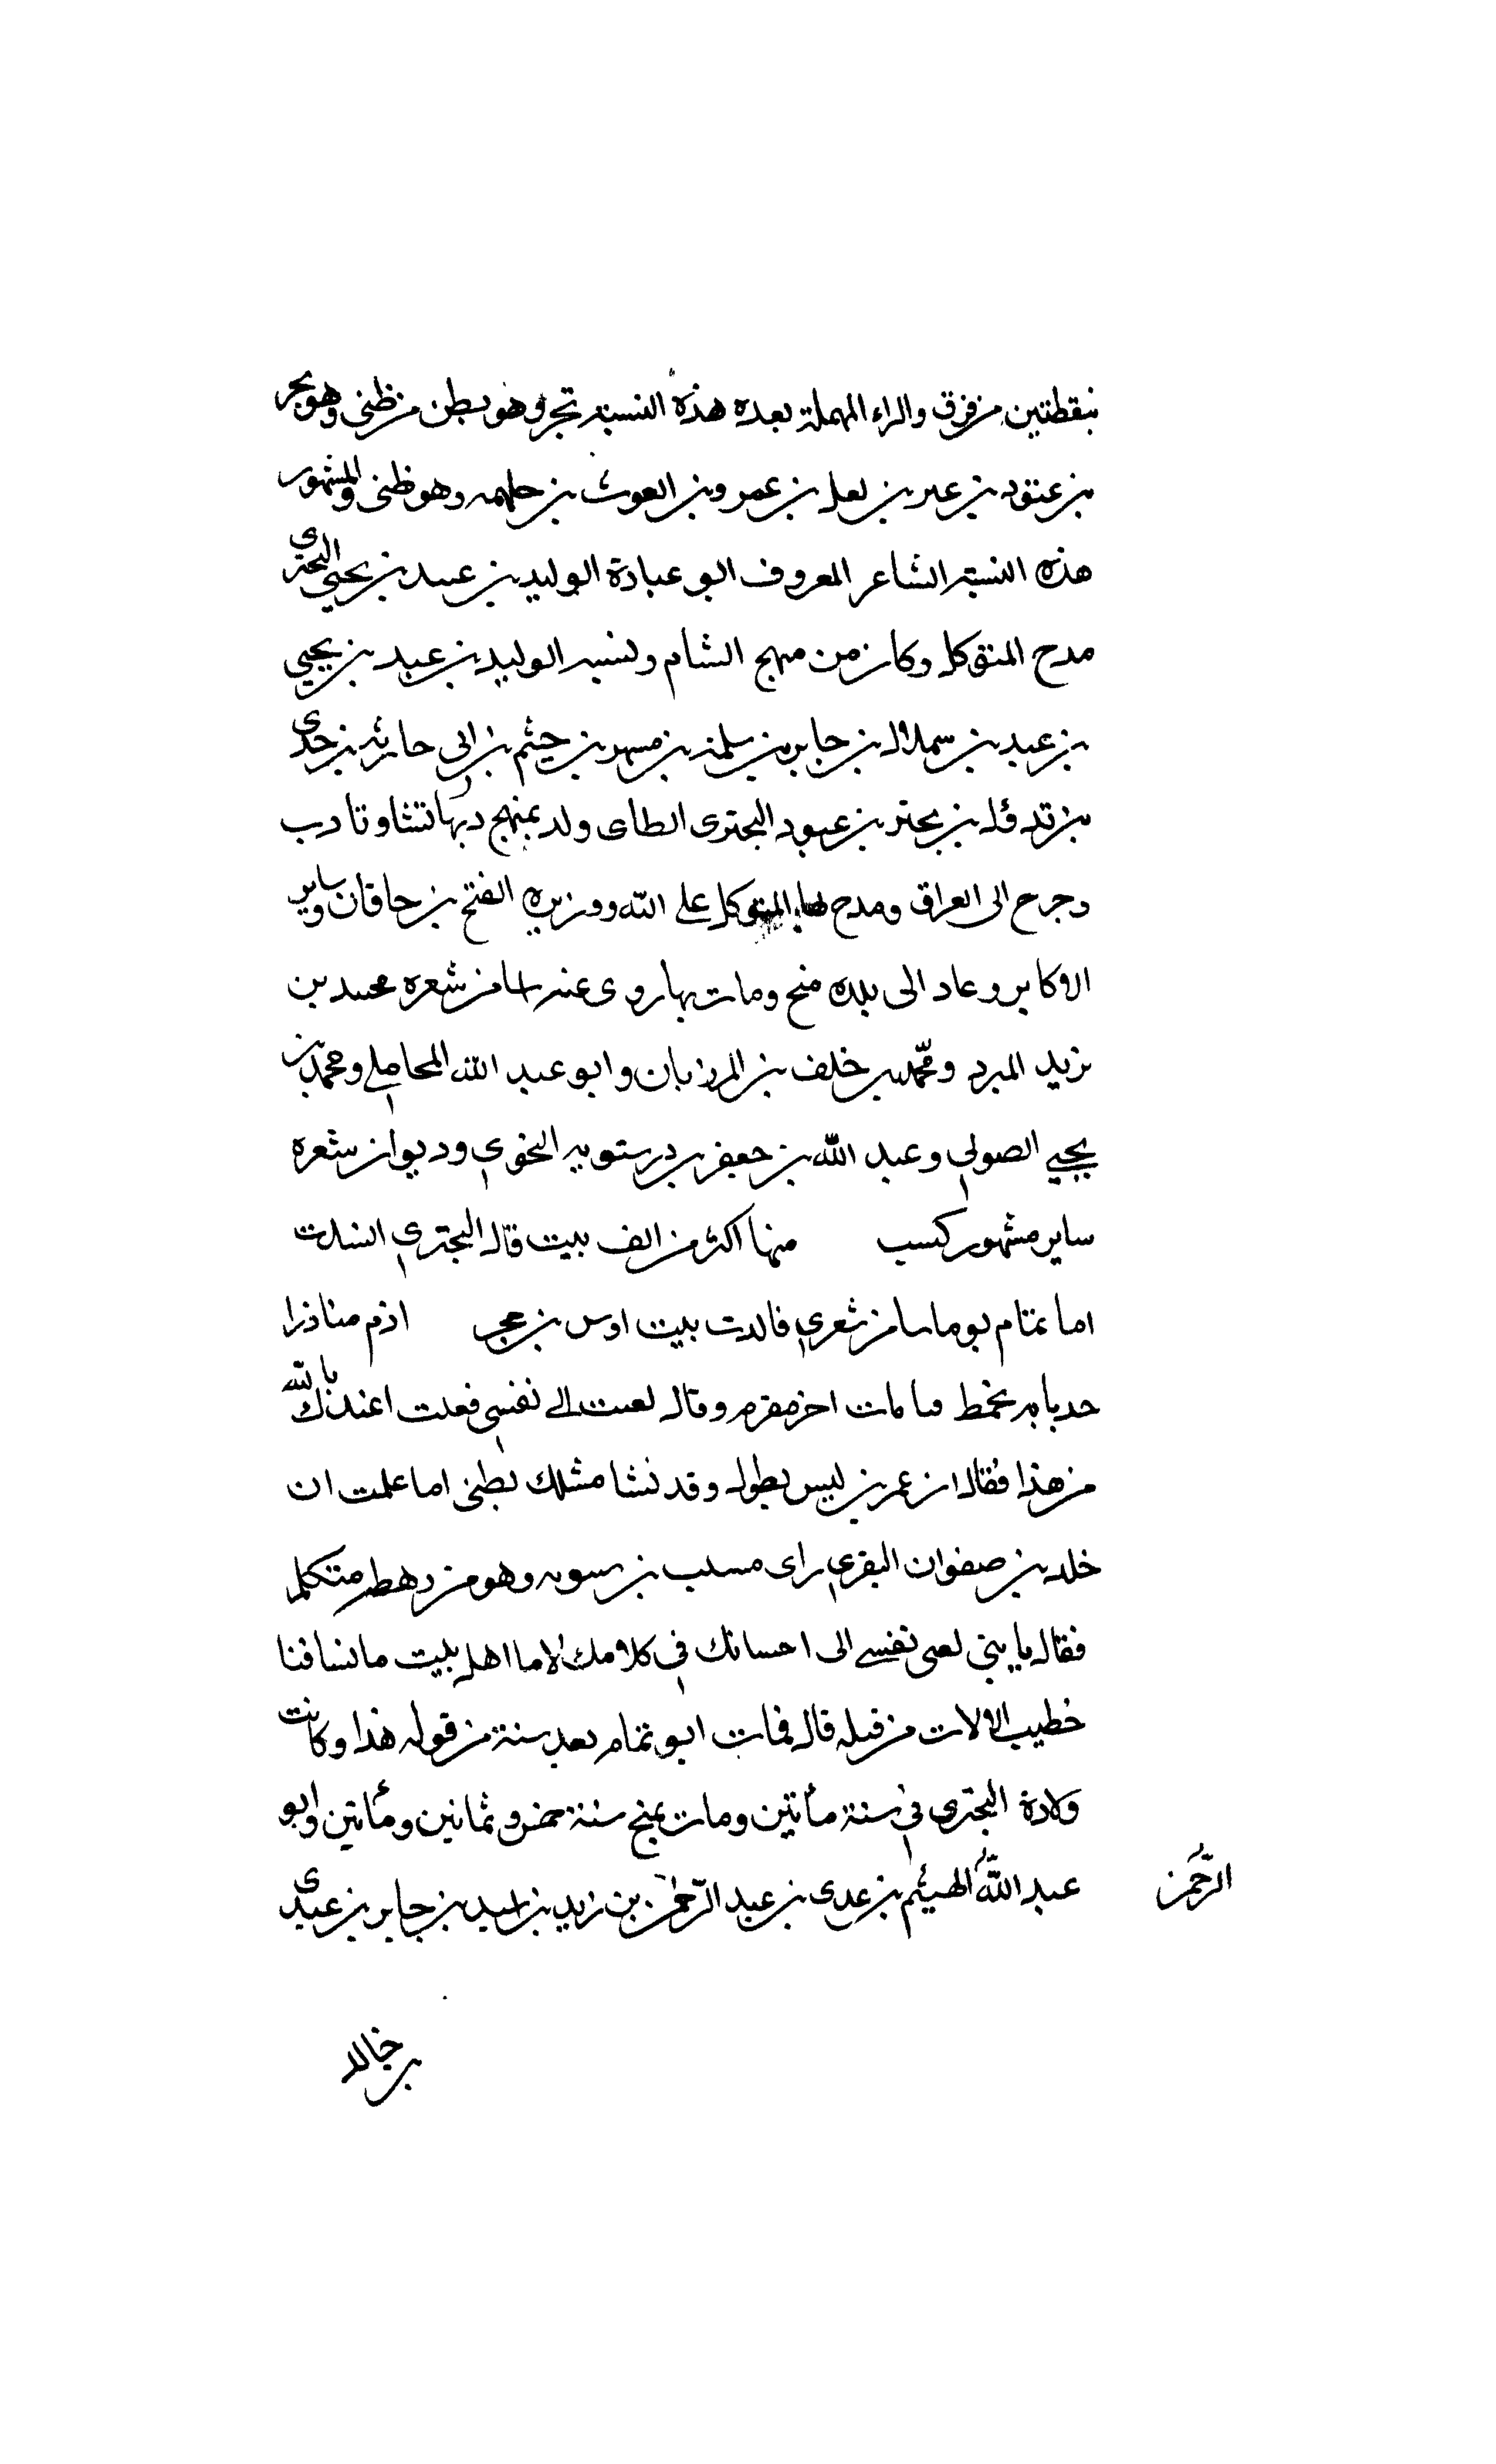 بنقطتين من فوق والراء المهملة بعده هذه النسبة تجر وهو بطن من طى وهو بحر
بن عتود بن عبر بن لعل بن عمرو بن العوث بن حلهمه وهو طى والمشهور
هذه النسبة الشاعر المعروف ابو عبادة الوليد بن عبيد بن يحيى البحترى
مدح المتوكل وكان من منهج الشام ونسبه الوليد بن عبيد بن يحيى
بن عبيد بن سملال بن جابر بن سلمة بن مسهر بن حيثم بن ابى حارثه بن جدى
بن تدول بن بحتر بن عبود البحترى الطاى ولد بمنهج وبها نشا وتادب
وجرح الى العراق ومدح بها المتوكل على الله ووزيره الفتح بن حاقان وساير
الاكابر وعاد الى بلده منبح ومات بها روى عنه اسا من شعره محمد بن
يزيد المبرد ومحمد بن خلف بن المرزبان وابو عبد الله المحاملى ومحمد بن
يحيى الصولى وعبد الله بن جعفر بن درستويه النحوى وديوان شعره
ساير مشهور كسب منها اكثر من الف بيت قال البحترى انشدت
اما تمام يوما سا من شعرى فالدت بيت اوس بن حجر اذم منا ذرا
حد بابه تخمط فبا بات اخر مقرم وقال لعيت الى نفسى فعلت اعندك بالله
من هذا فقال ان عمرى ليس بطول وقد نشا مثلك بطى اما علمت ان
خلد بن صفوان البقرى راى مسبب بن سويه وهو من رهطه متكلم
فقال يا بنى لعى نفسى الى احسانك فى كلامك لاما اهل بيت ما نشا فنا
خطيب الا لات من قبله قال فمات ابو تمام بعد سنة من قوله هذا وكانت
ولادة البحترى فى سنة مأتين ومات بمنبج سنة خمس وثمانين ومأتين وابو
عبد الله الهيثم بن عدى بن عبد الرحمن بن زيد بن اسيد بن جابر بن عبدى
الرحمن
بن خالد